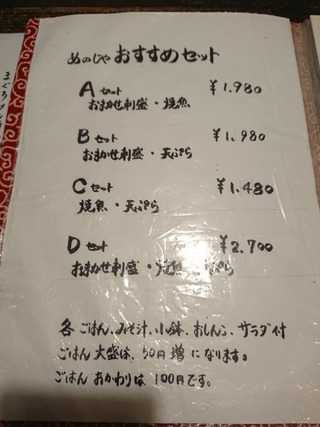 めのじや おすすめセット
A セット ¥1,980
おまかせ刺盛・焼魚
B セット ¥1,980
おまかせ刺盛・天ぷら
C セット ¥1,480
焼魚・天ぷら
D セット ¥2,700
おまかせ刺盛・焼魚・ぷら
各 ごはん、みそ汁、小鉢、おしんこ、サラダ付
ごはん 大盛は、50円 増になります。
ごはん おかわりは 100円です。
まぐろ